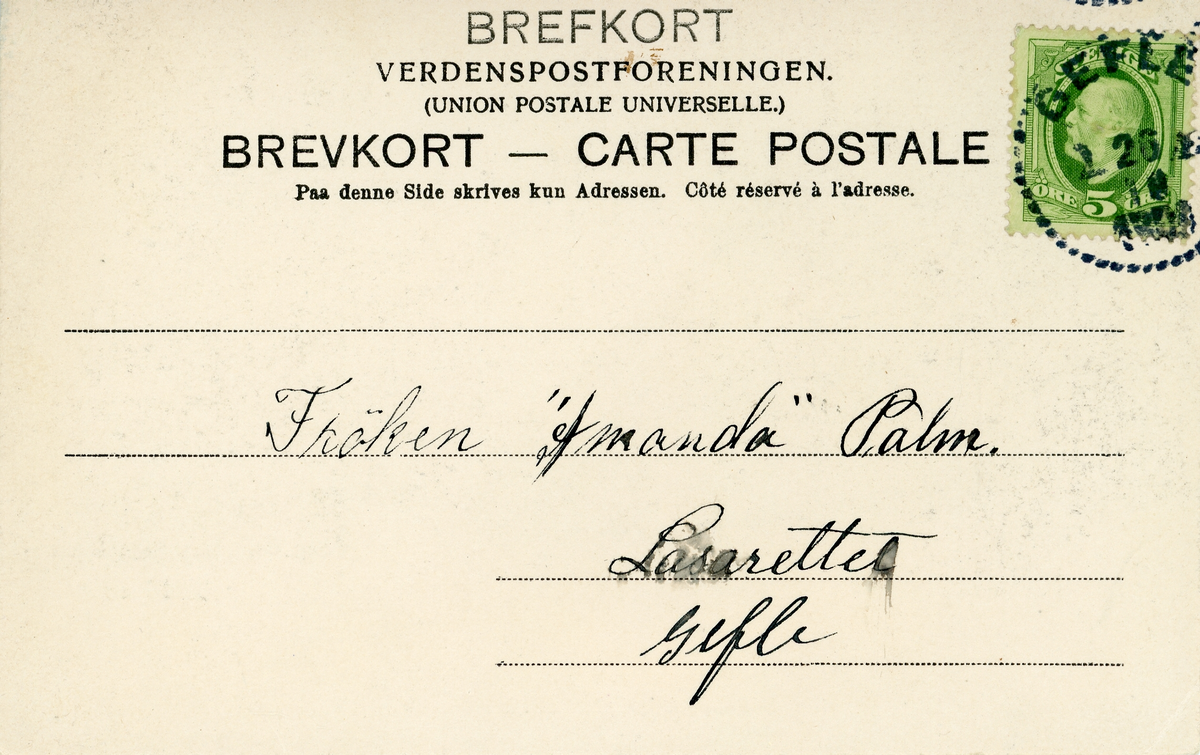 BREFKORT
VERDENSPOSTFORENINGEN.
(UNION POSTALE UNIVERSELLE.)
BREVKORT — CARTE POSTALE
Paa denne Side skrives kun Adressen. Côté réservé à l'adresse.
GEFLE
26
ÖRE 5
Fröken "Amanda" Palm.
Lasarettet
Gefle